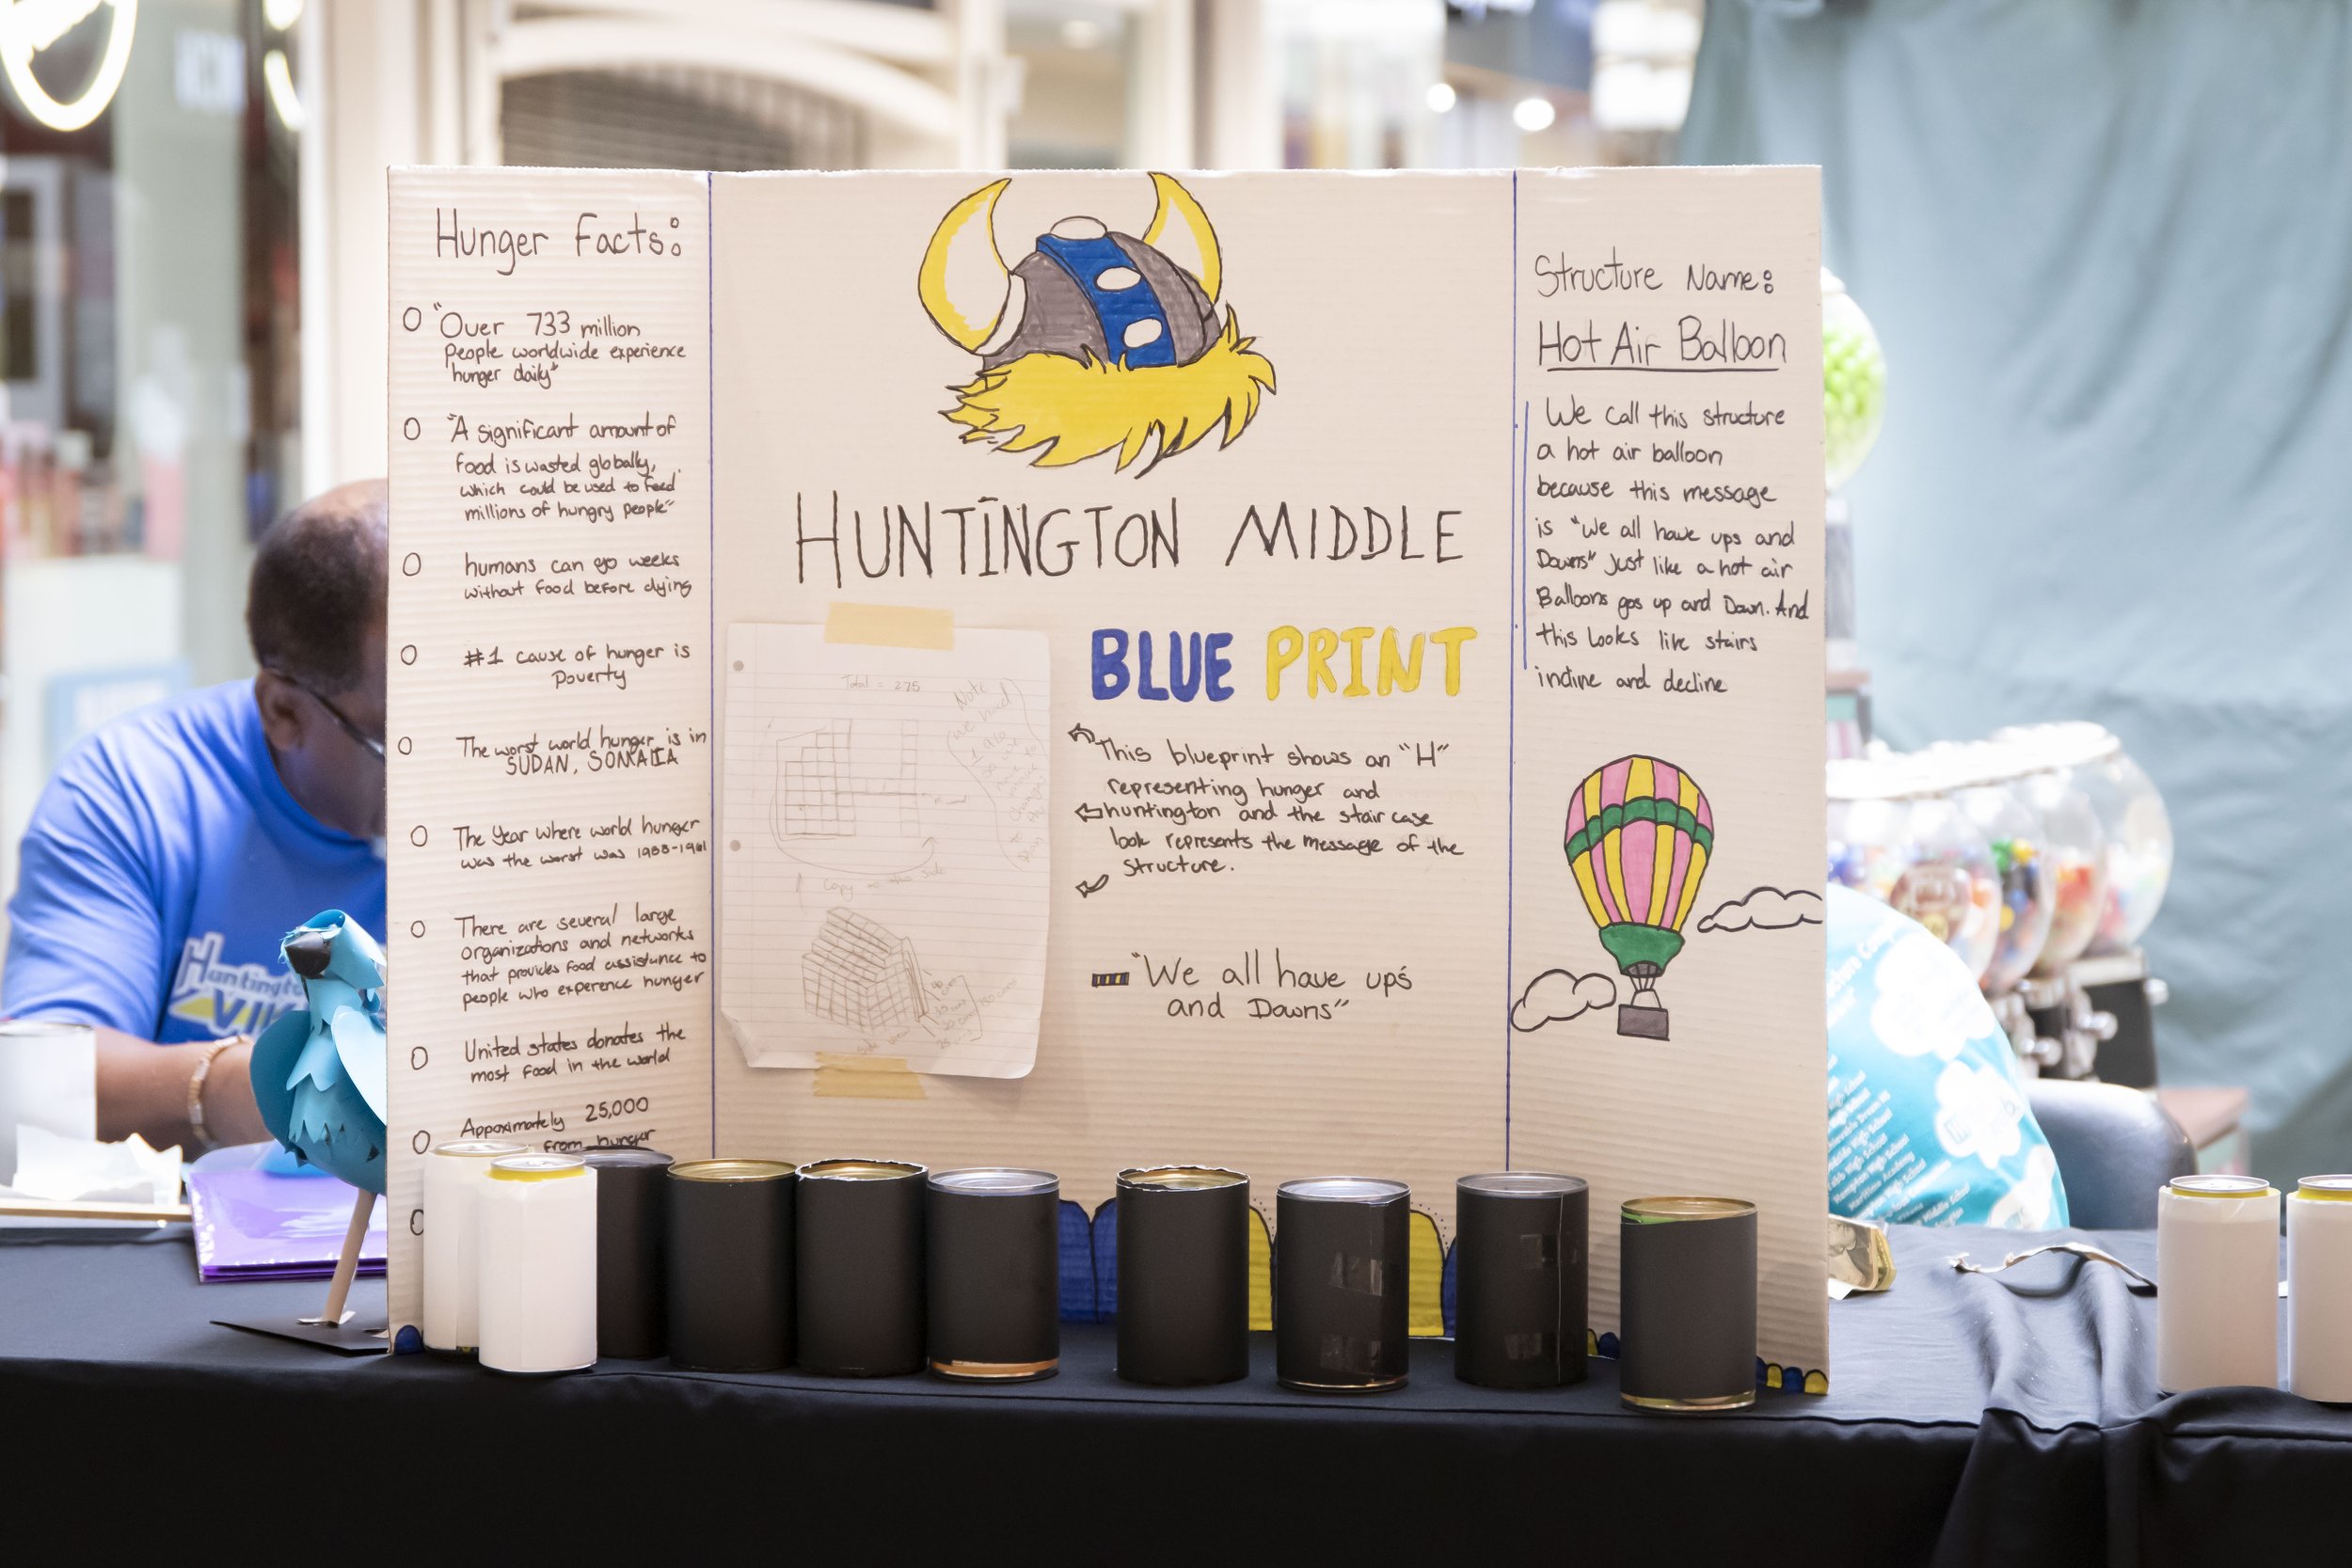 Hunger Facts:
"Over 733 million
People worldwide experience
hunger daily"
"A significant amount of
food is wasted globally,
which could be used to feed
millions of hungry people"
humans can go weeks
without food before dying
#1 cause of hunger is
Poverty
The worst world hunger is in
SUDAN, SOMALIA
The Year where world hunger
was the worst was
There are several large
organizations and networks
that provides food assistance to
people who experence hunger
United states donates the
most food in the world
Appoximately 25,000
from hunger
HUNTINGTON MIDDLE
BLUE PRINT
Total = 275
Note
we had
Copy to the side
This blueprint shows an "H"
representing hunger and
huntington and the stair case
look represents the message of the
structure.
"We all have ups
and Downs"
Structure Name:
Hot Air Balloon
We call this structure
a hot air balloon
because this message
is "We all have ups and
Downs" Just like a hot air
Balloons goes up and Down. And
this Looks like stairs
incline and decline
Huntington
VIK